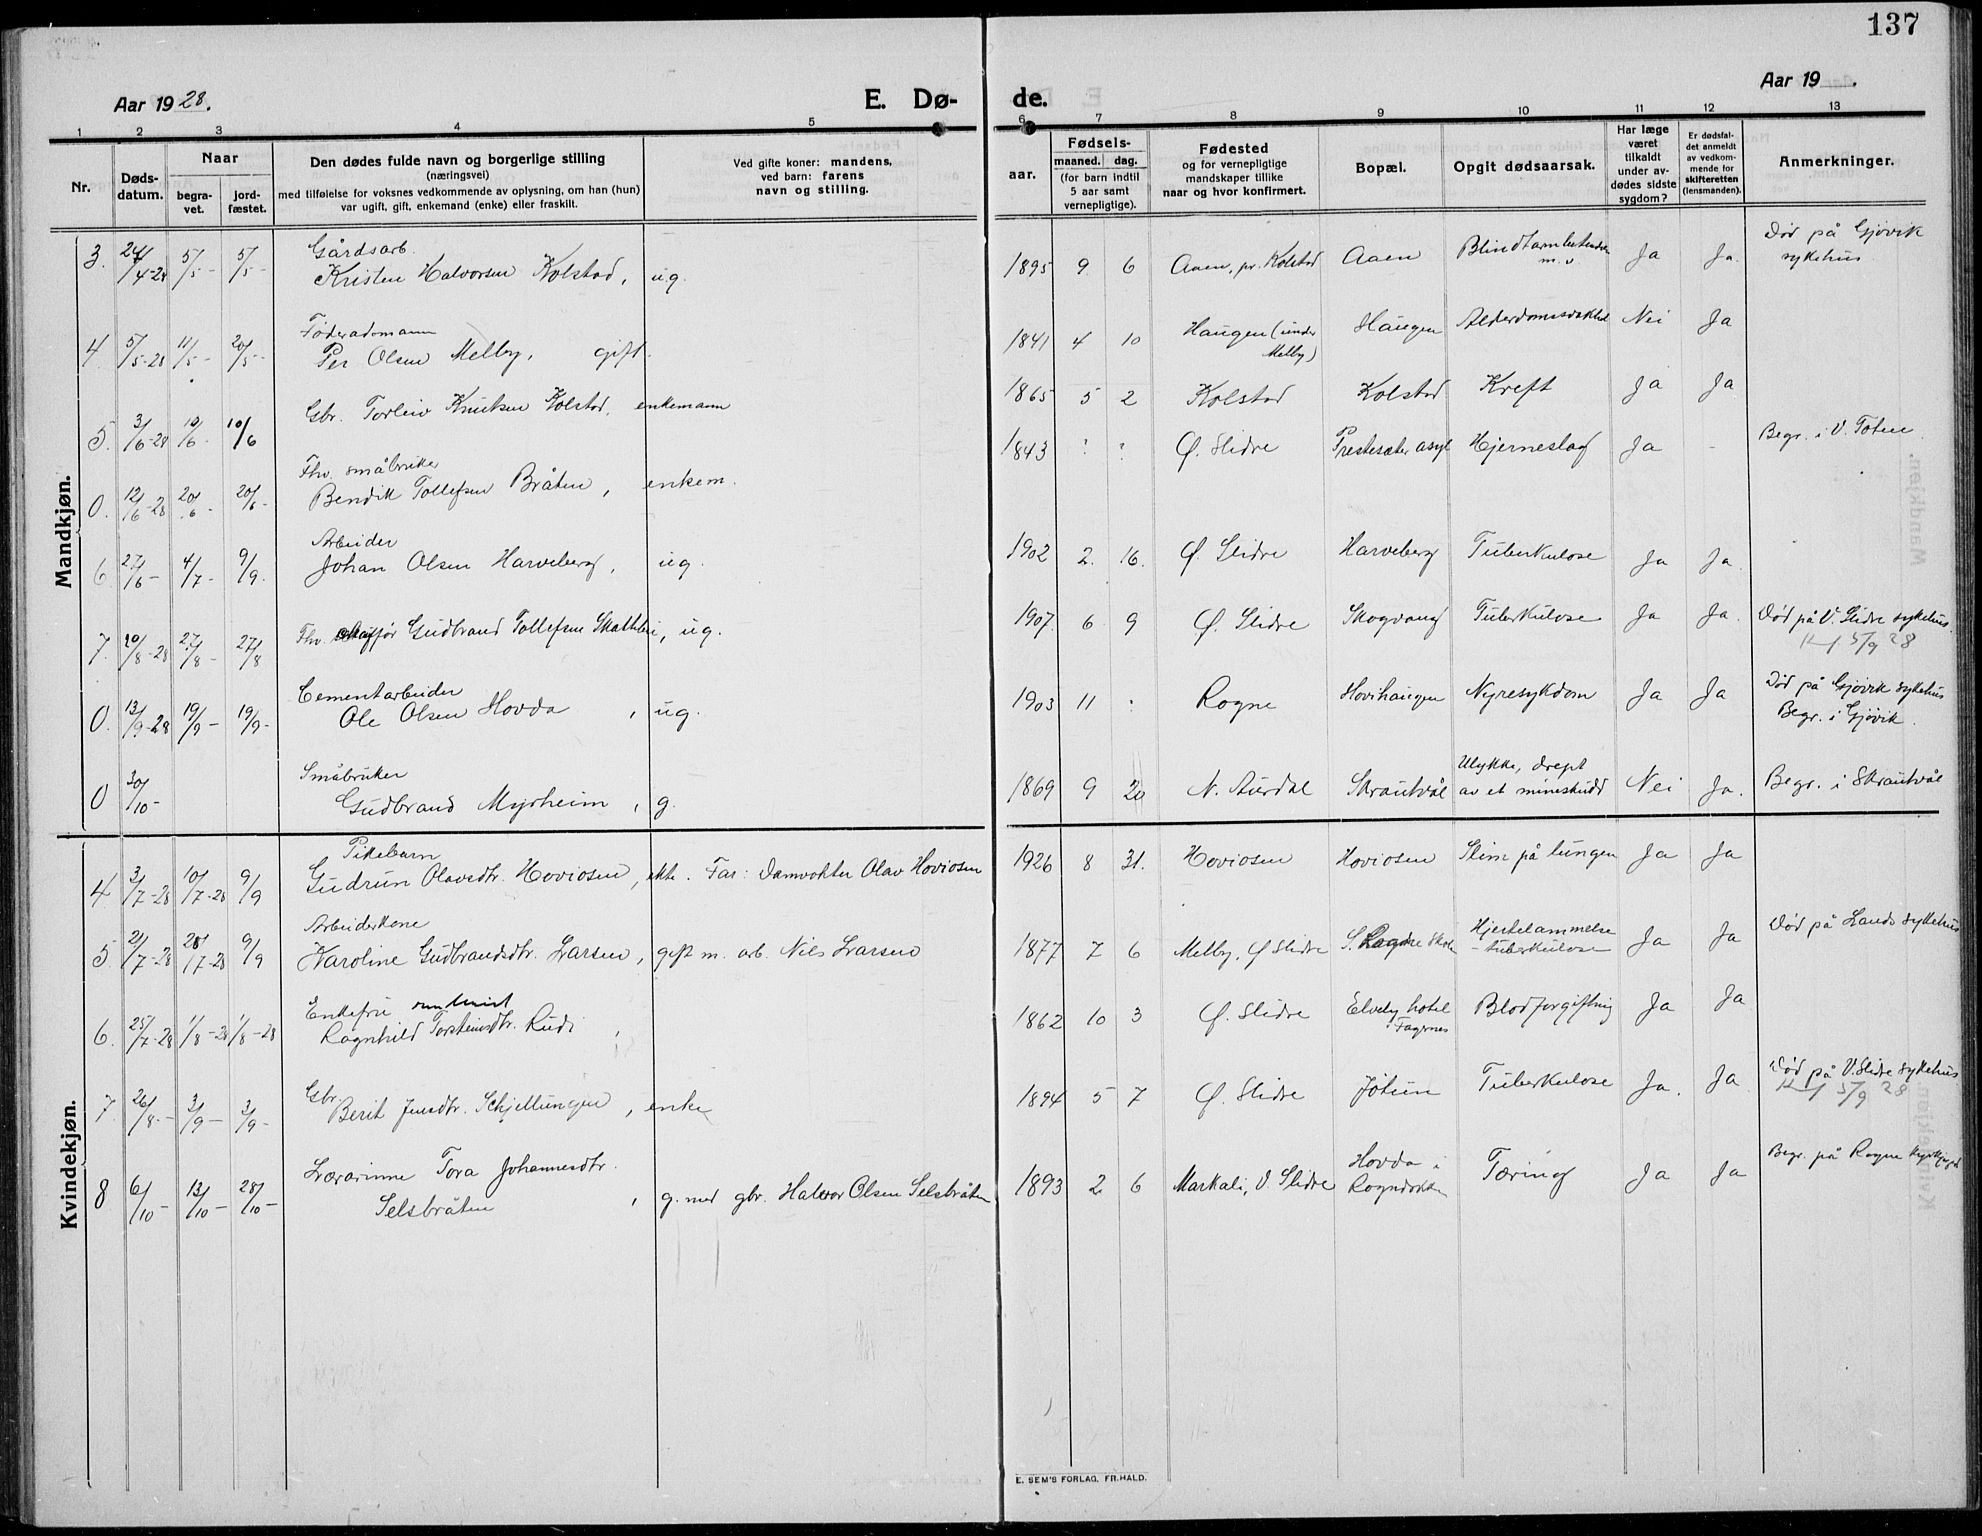 137
Aar 1928.
E. Dø-
de.
Aar 19 .
1 2 3 4 5 6 7 8 9 10 11 12 13
Nr.
Døds-
datum.
Naar
begra-
vet.
jord-
fæstet.
Den dødes fulde navn og borgerlige stilling
(næringsvei)
med tilføielse for voksnes vedkommende av oplysning, om han (hun)
var ugift, gift, enkemand (enke) eller fraskilt.
Ved gifte koner: mandens,
ved barn: farens
navn og stilling.
aar.
Fødsels-
maaned. dag.
(for barn indtil
5 aar samt
vernepligtige).
Fødested
og for vernepligtige
mandskaper tillike
naar og hvor konfirmert.
Bopæl.
Opgit dødsaarsak.
Har læge
været
tilkaldt
under av-
dødes sidste
sygdom?
Er dødsfal-
det anmeldt
av vedkom-
mende for
skifteretten
(lensmanden).
Anmerkninger.
Mandkjøn.
Gårdsarb.
3. 24/4-28 5/5- 5/5- Kristen Halvorsen Kolstad, ug. 1895 9 6 Aaen, pr. Kolstad Aaen Ja Ja. Død på Gjøvik
m. v. sykehus.
Føderadsmann
4. 5/5-28 11/5- 20/5- Per Olsen Melby, gift. 1841 4 10 Haugen (under Haugen Nei Ja
Melby)
5. 3/6-28 10/6- 10/6 Gbr. Torleiv Knutsen Kolstad, enkemann 1865 5 2 Kolstad Kolstad Kreft Ja Ja
Fhv. småbruker
0. 12/6-28 20/6- 20/6- Bendik Tollefsen Bråten, enkem. 1843 ? ? Ø. Slidre Prestesæter asyl Hjerneslag Ja - Begr. i V. Toten
Arbeider
6 27/6- 4/7- 9/9. Johan Olsen Harveberg, ug. 1902 2. 16. Ø. Slidre Harveberg Tuberkulose Ja Ja.
7. 20/8-28 27/8- 27/8 Fhv. Gudbrand Tollefsen, ug. 1907 6 9 Ø. Slidre Skogvang Tuberkulose Ja Ja. Død på V. Slidre sykehus.
5/9 28
Cementarbeider
0. 13/9-28 19/9- 19/9- Ole Olsen Hovda, ug. 1903 11 : Rogne Hovihaugen Nyresykdom Ja Ja Død på Gjøvik sykehus
Begr. i Gjøvik.
Småbruker Ulykke, drept
0 30/10- Gudbrand Myrheim, g. 1869 9 20 N. Aurdal Skrautvål av et mineskudd Nei Ja. Begr. i Skrautvål
Kvindekjøn.
Pikebarn
4. 3/7-28 10/7-28 9/9 Gudrun Olavsdtr. Hoviosen, ekte. Far: Damvokter Olav Hoviosen 1926 8 31. Hoviosen Hoviosen Slim på lungen Ja Ja
Arbeiderkone Hjertelammelse
5. 21/7-28 28/7-28 9/9 Karoline Gudbrandsdtr. Larsen, gift m. arb. Nils Larsen 1877 7 6 Melby, Ø Slidre - tuberkulose Ja Ja Død på Lands sykehus
Enkefru
6. 25/7-28 1/8-28 1/8-28 Ragnhild Torsteinsdtr. Rudi, 1862 10 3 Ø. Slidre Elvely hotel Blodforgiftning Ja Ja
Fagernes
Gbr.
7. 26/8- 3/9- 3/9- Berit Jensdtr. Schjellungen, enke 1894 5 7 Ø. Slidre Jotun Tuberkulose Ja. Ja Død på V. Slidre sykehus
5/9 28
Lærarinne Tora Johannesdtr. Hovda i
8 6/10- 13/10- 28/10- Selsbråten, g. med gbr. Halvor Olsen Selsbråten 1893 2 6 Markali, V. Slidre Rogndokken Tæring Ja Ja Begr. på Rogne
E. SEM'S FORLAG. FR.HALD.